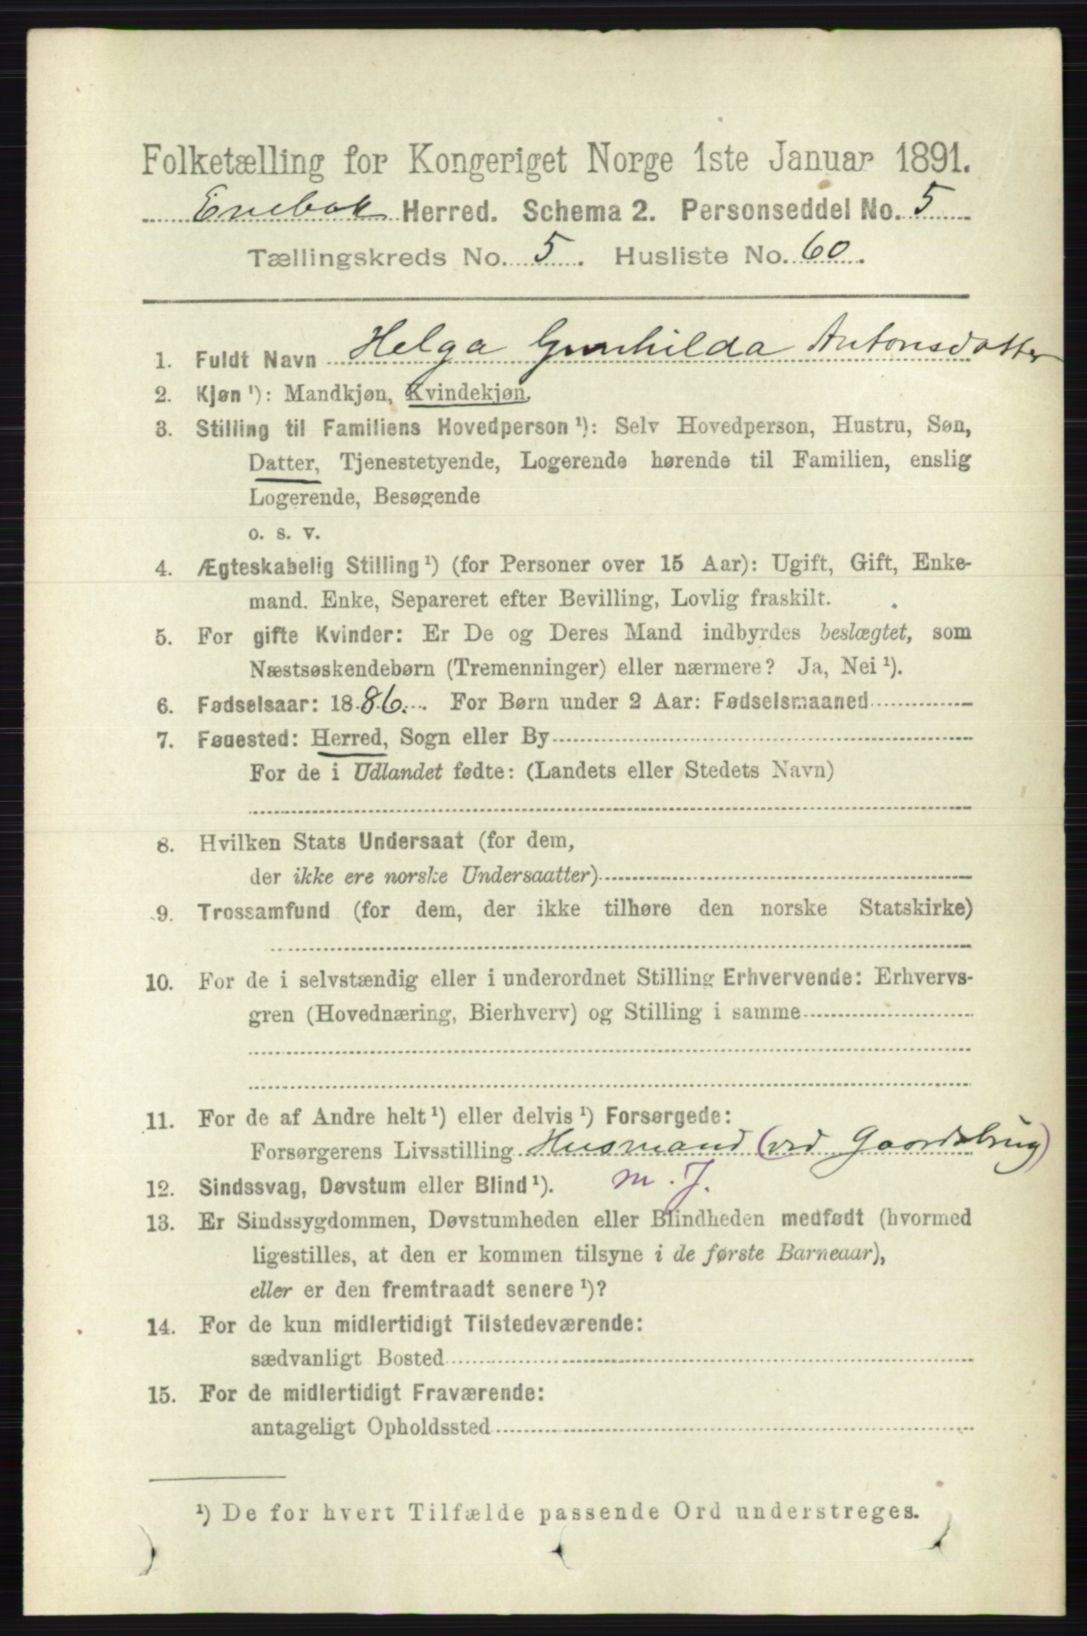 Folketælling for Kongeriget Norge 1ste Januar 1891.
Enebak Herred. Schema 2. Personseddel No. 5
Tællingskreds No. 5. Husliste No. 60.
1. Fuldt Navn Helga Gunhilda Antonsdatter
2. Kjøn ¹): Mandkjøn, Kvindekjøn.
3. Stilling til Familiens Hovedperson ¹): Selv Hovedperson, Hustru, Søn,
Datter, Tjenestetyende, Logerende hørende til Familien, enslig
Logerende, Besøgende
o. s. v.
4. Ægteskabelig Stilling ¹) (for Personer over 15 Aar): Ugift, Gift, Enke-
mand. Enke, Separeret efter Bevilling, Lovlig fraskilt.
5. For gifte Kvinder: Er De og Deres Mand indbyrdes beslægtet, som
Næstsøskendebørn (Tremenninger) eller nærmere? Ja, Nei ¹).
6. Fødselsaar: 1886. For Børn under 2 Aar: Fødselsmaaned
7. Fødested: Herred, Sogn eller By
For de i Udlandet fødte: (Landets eller Stedets Navn)
8. Hvilken Stats Undersaat (for dem,
der ikke ere norske Undersaatter)
9. Trossamfund (for dem, der ikke tilhøre den norske Statskirke)
10. For de i selvstændig eller i underordnet Stilling Erhvervende: Erhvervs-
gren (Hovednæring, Bierhverv) og Stilling i samme
11. For de af Andre helt ¹) eller delvis ¹) Forsørgede:
Forsørgerens Livsstilling Husmand (ved Gaardsbrug)
m. J.
12. Sindssvag, Døvstum eller Blind ¹).
13. Er Sindssygdommen, Døvstumheden eller Blindheden medfødt (hvormed
ligestilles, at den er kommen tilsyne i de første Barneaar),
eller er den fremtraadt senere ¹)?
14. For de kun midlertidigt Tilstedeværende:
sædvanligt Bosted
15. For de midlertidigt Fraværende:
antageligt Opholdssted
¹) De for hvert Tilfælde passende Ord understreges.